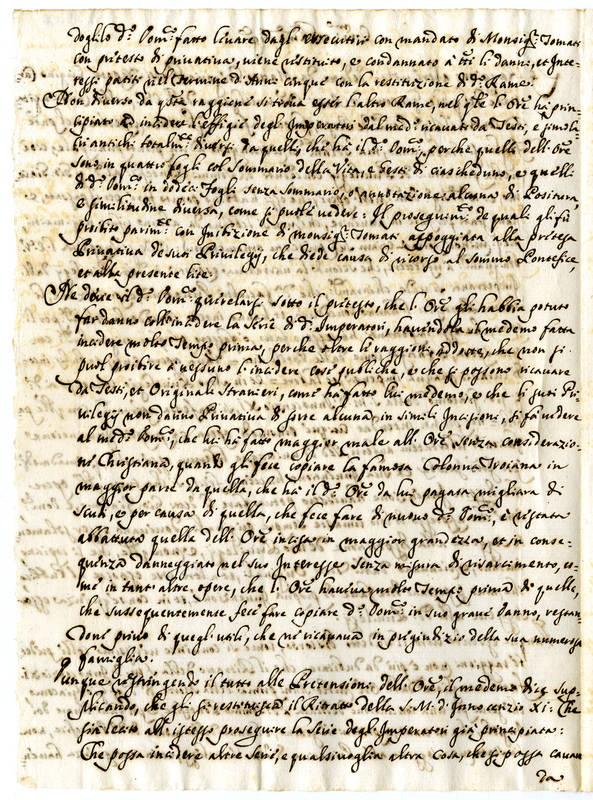 dogli lo d.º Dom.º fatto livare dagl' esecutivi con mandato di Monsig.r Tomati
con pretesto di privativa, viene restituito, e condannato a tti li danni, et Inte-
ressi patiti nel Termine d'Anni cinque con la restituzione di d.º Rame.
Non diverso da qsta raggione si trova esser l'altro Rame, nel qle l'Ore ha prin-
cipiato ad incidere l'effigie degl' Imperatori dal med.º ricavati da Testi, e simola-
cri antichi totalm.te diversi da quelli, che ha il d.º Dom.º, perche quelli dell'Ore
sono in quattro fogli col Sommario della Vita, e Gesti di ciascheduno, e quelli
di d.º Dom.º in dodici fogli senza Sommario, ò annotazione alcuna di Positura,
e similitudine diversa, come si puole vedere: Il proseguim.to de quali gli fù
proibito parim.te con Inibizione di Monsig.r Tomati appoggiata alla pretesa
Privativa de suoi Privilegij, che diede causa di ricorso al Sommo Pontefice,
et alla presente lite.
Ne deve il d.º Dom.º querelarsi sotto il pretesto, che l'Ore gli habbia potuto
far danno coll'incidere la Serie di d.i Imperatori, havendola il medemo fatta
incidere molto Tempo prima, perche oltre le raggioni addotte, che non si
puol proibire a nessuno l'incidere cose publiche, e che si possono ricavare
da Testi, et Originali Stranieri, come ha fatto lui medemo, e che li suoi Pri-
vilegij non danno Privativa di sorte alcuna in simili Incisioni, si fà vedere
al med.º Dom.º, che lui ha fatto maggior male all'Ore senza considerazio-
ne Christiana, quando gli fece copiare la famosa Colonna Troiana in
maggior parte da quella, che ha il d.º Ore da lui pagata migliara di
Scudi, e per causa di quella, che fece fare di nuovo d.º Dom.º, è restata
abbattuta quella dell'Ore incisa in maggior grandezza, et in conse-
quenza danneggiato nel suo Interesse senza misura di risarcimento, co-
me in tant'altre opere, che l'Ore haveva molto Tempo prima di quelle,
che sussequentemente fece fare copiare d.º Dom.º in suo grave danno, restan-
done privo di quegl'utili, che ne ricavava in pregiudizio della sua numerosa
famiglia.
Dunque restringendo il tutto alle Pretensioni dell'Ore, il medemo dice sup-
plicando, che gli si restituisca il Ritratto della S. M. d'Innocenzio XI: Che
sia lecito all'istesso proseguire la Serie degl'Imperatori già principiata:
Che possa incidere altre Serie, e qualsivoglia altra Cosa, che si possa cavare
da